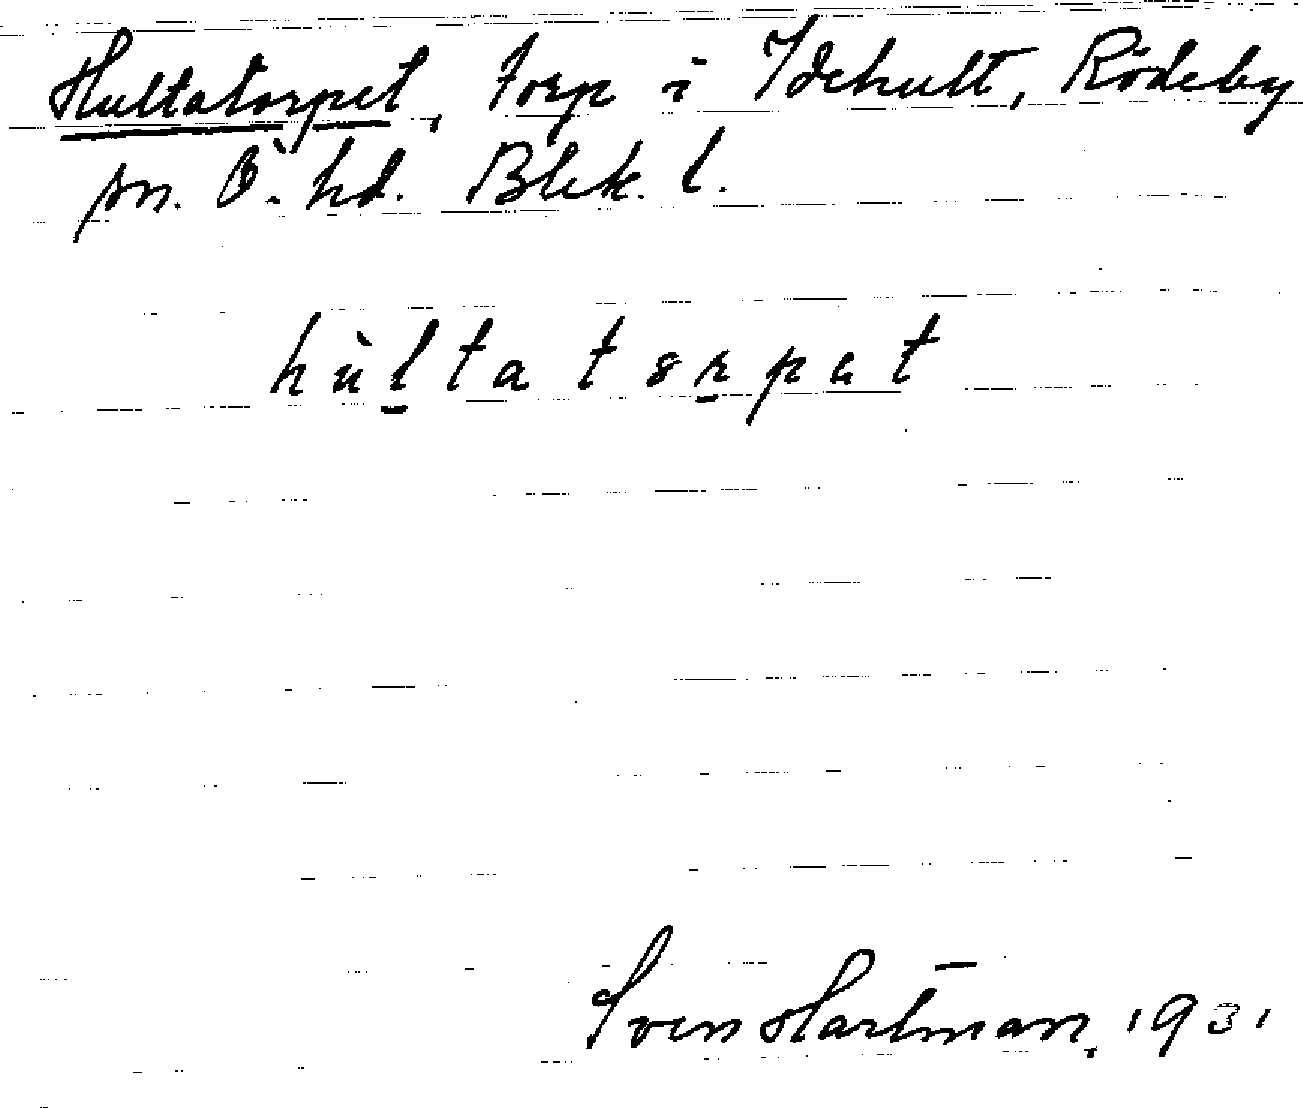 Hultatorpet, Torp i Idehult, Rödeby
sn. Ö. hd. Blek. l.
hùltatorpat
Sven Hartman, 1931